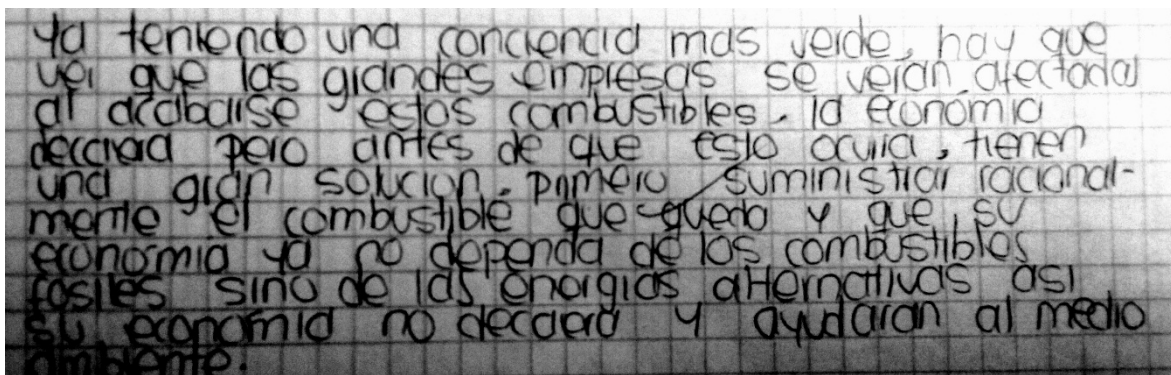 ya teniendo una conciencia mas verde, hay que
ver que las grandes empresas se verán afectadas
al acabarse estos combustibles. la económia
decaera pero antes de que esto ocurra, tienen
una gran solución. primero suministrar racional-
mente el combustible que queda y que su
economia ya no dependa de los combustibles
fosiles sino de las energias alternativas asi
su economia no decaera y ayudaran al medio
ambiente.